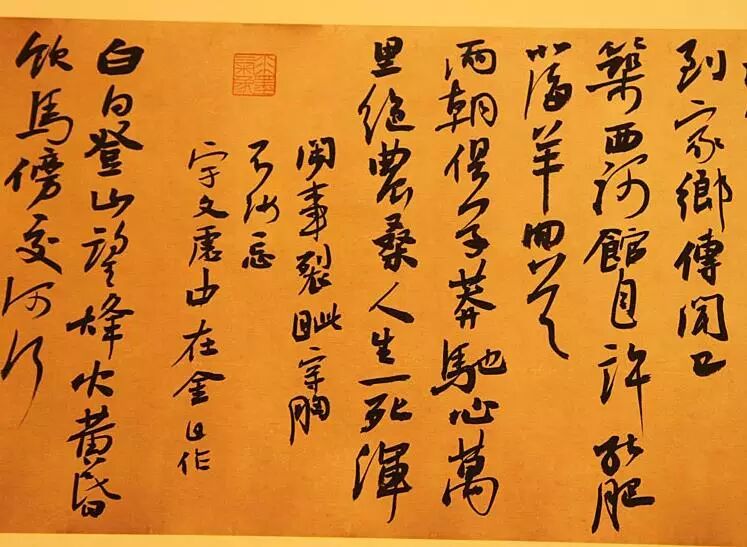 到家鄉傳聞已
築西河館自許能肥
北海羊回首
兩朝俱草莽馳心萬
里絕農桑人生一死渾
閒事裂眥穿胸
不汝忘
宇文虛中在金日作
白日登山望烽火黃昏
飲馬傍交河行